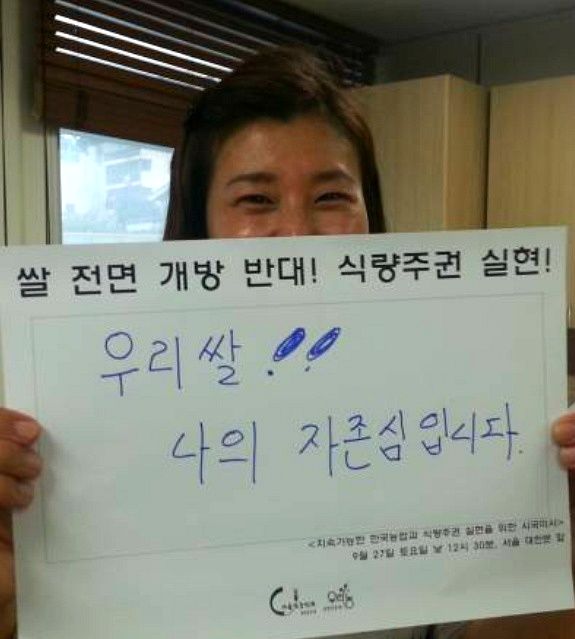 쌀 전면 개방 반대! 식량주권 실현!
우리쌀!!
나의 자존심입니다.
<지속가능한 한국농업과 식량주권 실현을 위한 시국미사>
9월 27일 토요일 낮 12시 30분, 서울 대한문 앞
우리농